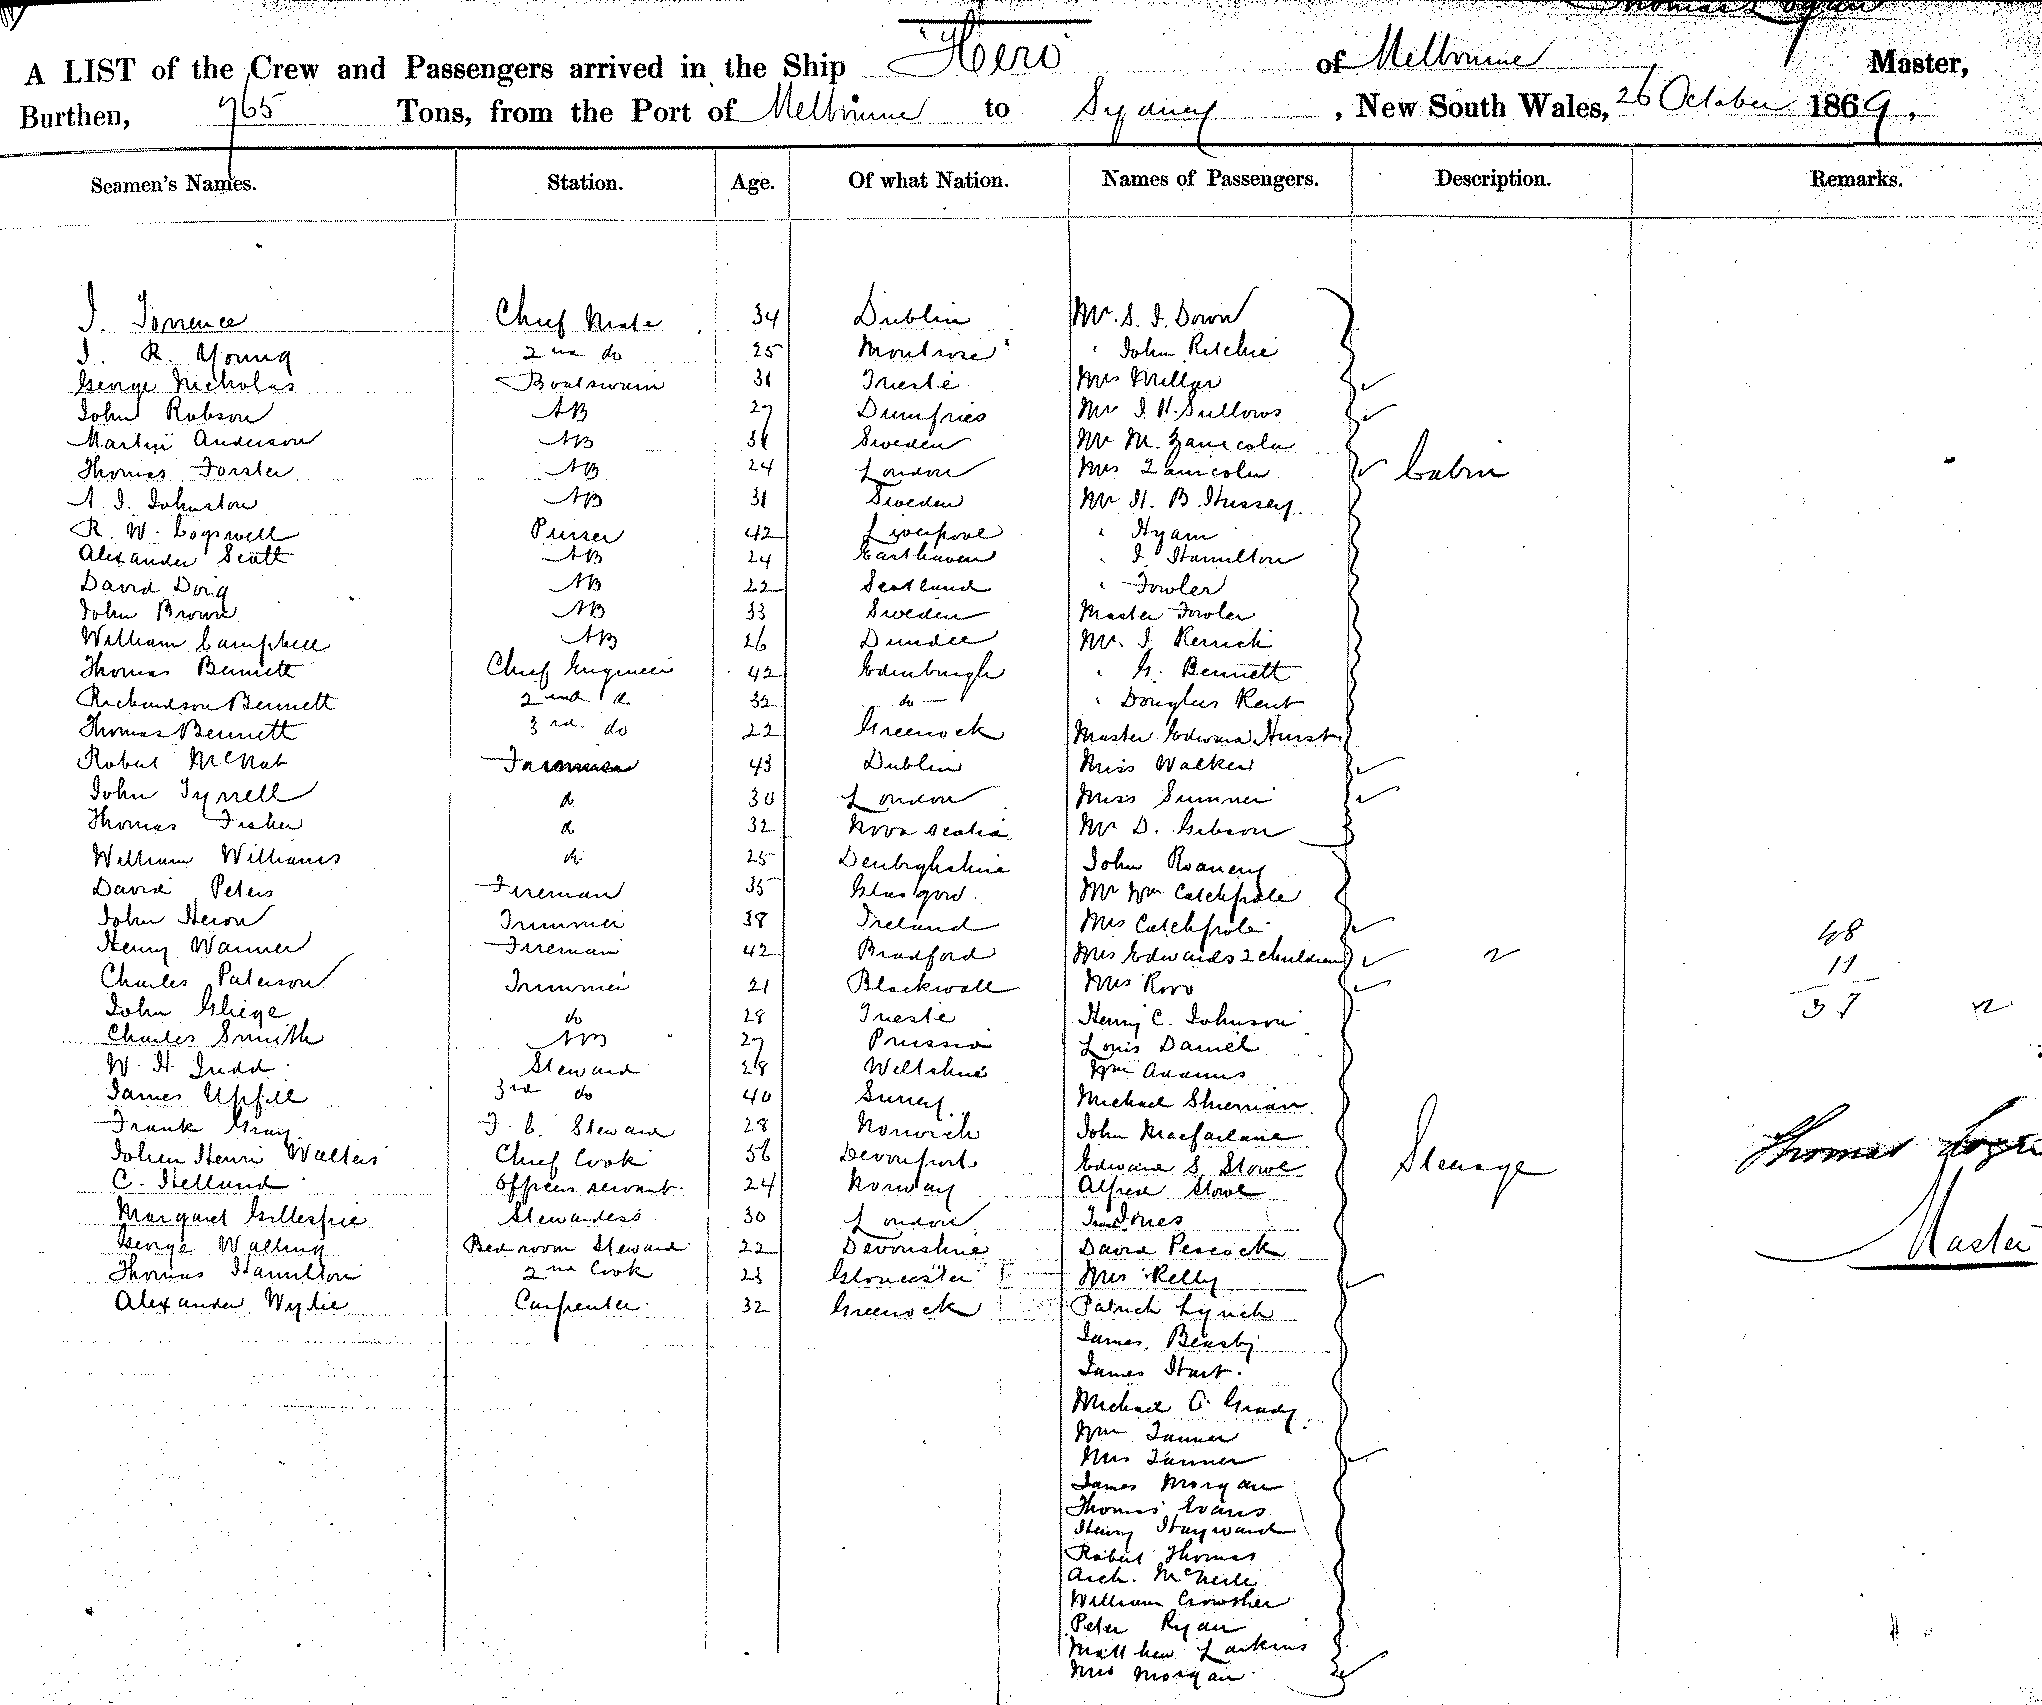 "Hero"
A LIST of the Crew and Passengers arrived in the Ship Hero of Melbourne Master,
Burthen, 965 Tons, from the Port of Melbourne to Sydney, New South Wales, 26 October 1869.
Seamen's Names. Station. Age. Of what Nation. Names of Passengers. Description. Remarks.
J. Torrence Chief Mate 34 Dublin Mr. S. J. Down
J. R. Young 2nd do 25 Montrose " John Ritchie
George Nicholas Boatswain 31 Trieste Mrs Millar
John Robson AB 27 Dumfries Mr J. H. Sullows
Martin Anderson AB 31 Sweden Mr M.
Thomas Forster AB 24 London Mrs Cabin
A. J. Johnston AB 31 Sweden Mr H. B. Hussey
R. W. Cogswell Purser 42 Liverpool " Hyam
Alexander Scott AB 24 Easthaven " J. Hamilton
David Doig AB 22 Scotland " Fowler
John Brown AB 33 Sweden Master Fowler
William Campbell AB 26 Dundee Mr. J.
Thomas Bennett Chief Engineer 42 Edinburgh " G. Bennett
Richardson Bennett 2nd do 32 do " Douglas Kent
Thomas Bennett 3rd do 22 Greenock Master Edward Hurst
Robert McNab 43 Dublin Miss Walker
John Tyrrell do 30 London Miss Sumner
Thomas Fisher do 32 Nova Scotia Mr D. Gibson
William Williams do 25 Denbighshire John Roaney
David Peters Fireman 35 Glasgow Mr Wm Catchpole
John Heron Trimmer 38 Ireland Mrs Catchpole
Henry Warner Fireman 42 Bradford Mrs Edwards 2 children 48
Charles Paterson Trimmer 21 Blackwall Mrs Roro 11
John Gliege do 28 Trieste Henry C. Johnson 37
Charles Smith AB 27 Prussia Louis Daniel
W. H. Judd Steward 28 Wiltshire Wm Adams
James Upfill 3rd do 40 Surrey Michael Shierman
Frank Gray F. C. Steward 28 Norwich John Macfarlane
Julien Henri Walters Chief Cook 56 Devonport Edward S. Stowe Steerage Thomas Logan
C. Helland Officers servant 24 Norway Alfred Stowe
Margaret Gillespie Stewardess 30 London Jones
George Walling Bedroom Steward 22 Devonshire David Peacock Master
Thomas Hamilton 2nd Cook 28 Gloucester Mrs Kelly
Alexander Wylie Carpenter 32 Greenock Patrick Lynch
James Beasby
James Hart
Michael O. Grady
Wm Tanner
Mrs Tanner
James Morgan
Thomas Evans
Henry Hayward
Robert Thomas
Arch. McNeile
William Crowther
Peter Ryan
Matthew Larkins
Mrs Morgan